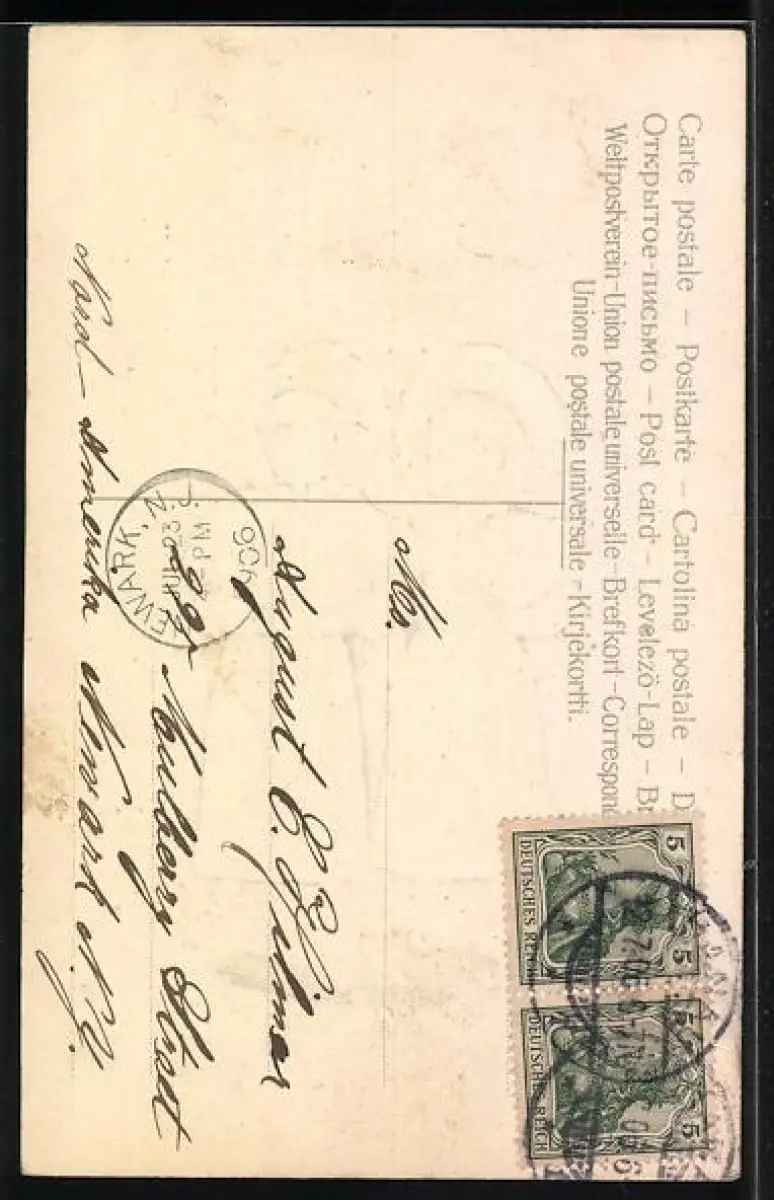 Carte postale – Postkarte – Cartolina postale – D
Открытое-письмо – Post card – Levelezö-Lap – Br
Weltpostverein-Union postale universelle-Brefkort-Correspond
Unione postale universale-Kirjekortti.
5 5
DEUTSCHES REICH
5 5
DEUTSCHES REICH
NEWARK, N.J.
PM
906
August E.
Mulberry Street
Nord-Amerika Newark N.J.